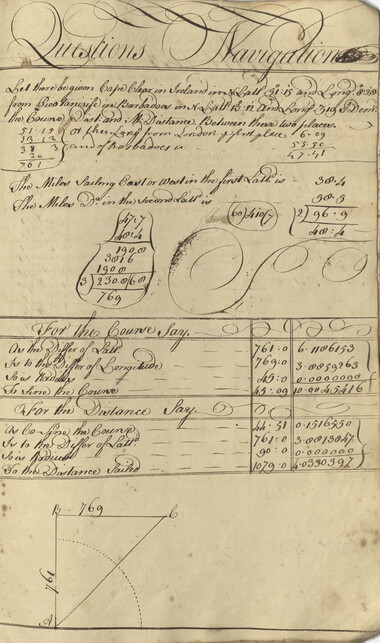 Questions Navigation
Let there be given Cape Clear in Ireland in N Latt 51:15 and Long
from in Barbadoes in N Latt 13:12 and Long
the Course Dist and M Distance Between these two places.
51:15 at the Long from London first place 6-09
13:12 and of Barbadoes is 53-50
38 3 47-41
20
761
The Miles Sailing East or West in the first Latt is 38.4
The Miles Do in the Second Latt is 58.5
47.7 60 410 2 96.9
48.4 48.4
1908
3816
1908
3 2308 68
769
For the Course Say.
As the Differ of Latt 761:0
Is to the Differ of Longitude 769:0 3.8859263
So is Radius 45:0 0.0000000
To Sine the Course 45:09 10.0045416
For the Distance Say.
As Co-Sine the Course 44:51 0.1516550
Is to the Differ of Latt 761:0 3.8813847
So is Radius 90:0 0.0000000
To the Distance Sailed 1079:0 4.0330397
B 769 C
761
A